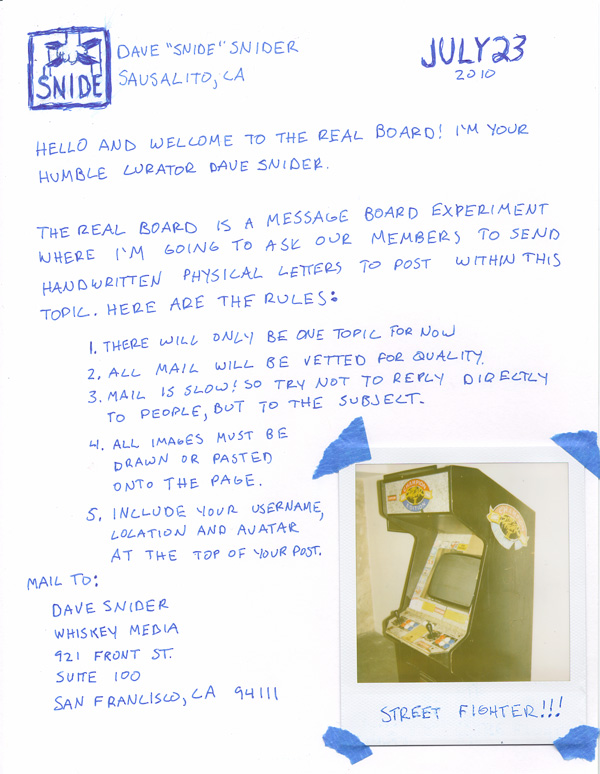 SNIDE
DAVE "SNIDE" SNIDER
SAUSALITO, CA
JULY 23
2010
HELLO AND WELCOME TO THE REAL BOARD! I'M YOUR
HUMBLE CURATOR DAVE SNIDER.
THE REAL BOARD IS A MESSAGE BOARD EXPERIMENT
WHERE I'M GOING TO ASK OUR MEMBERS TO SEND
HANDWRITTEN PHYSICAL LETTERS TO POST WITHIN THIS
TOPIC. HERE ARE THE RULES:
1. THERE WILL ONLY BE ONE TOPIC FOR NOW
2. ALL MAIL WILL BE VETTED FOR QUALITY.
3. MAIL IS SLOW! SO TRY NOT TO REPLY DIRECTLY
TO PEOPLE, BUT TO THE SUBJECT.
4. ALL IMAGES MUST BE
DRAWN OR PASTED
ONTO THE PAGE.
5. INCLUDE YOUR USERNAME,
LOCATION AND AVATAR
AT THE TOP OF YOUR POST.
MAIL TO:
DAVE SNIDER
WHISKEY MEDIA
921 FRONT ST.
SUITE 100
SAN FRANCISCO, CA 94111
STREET FIGHTER!!!